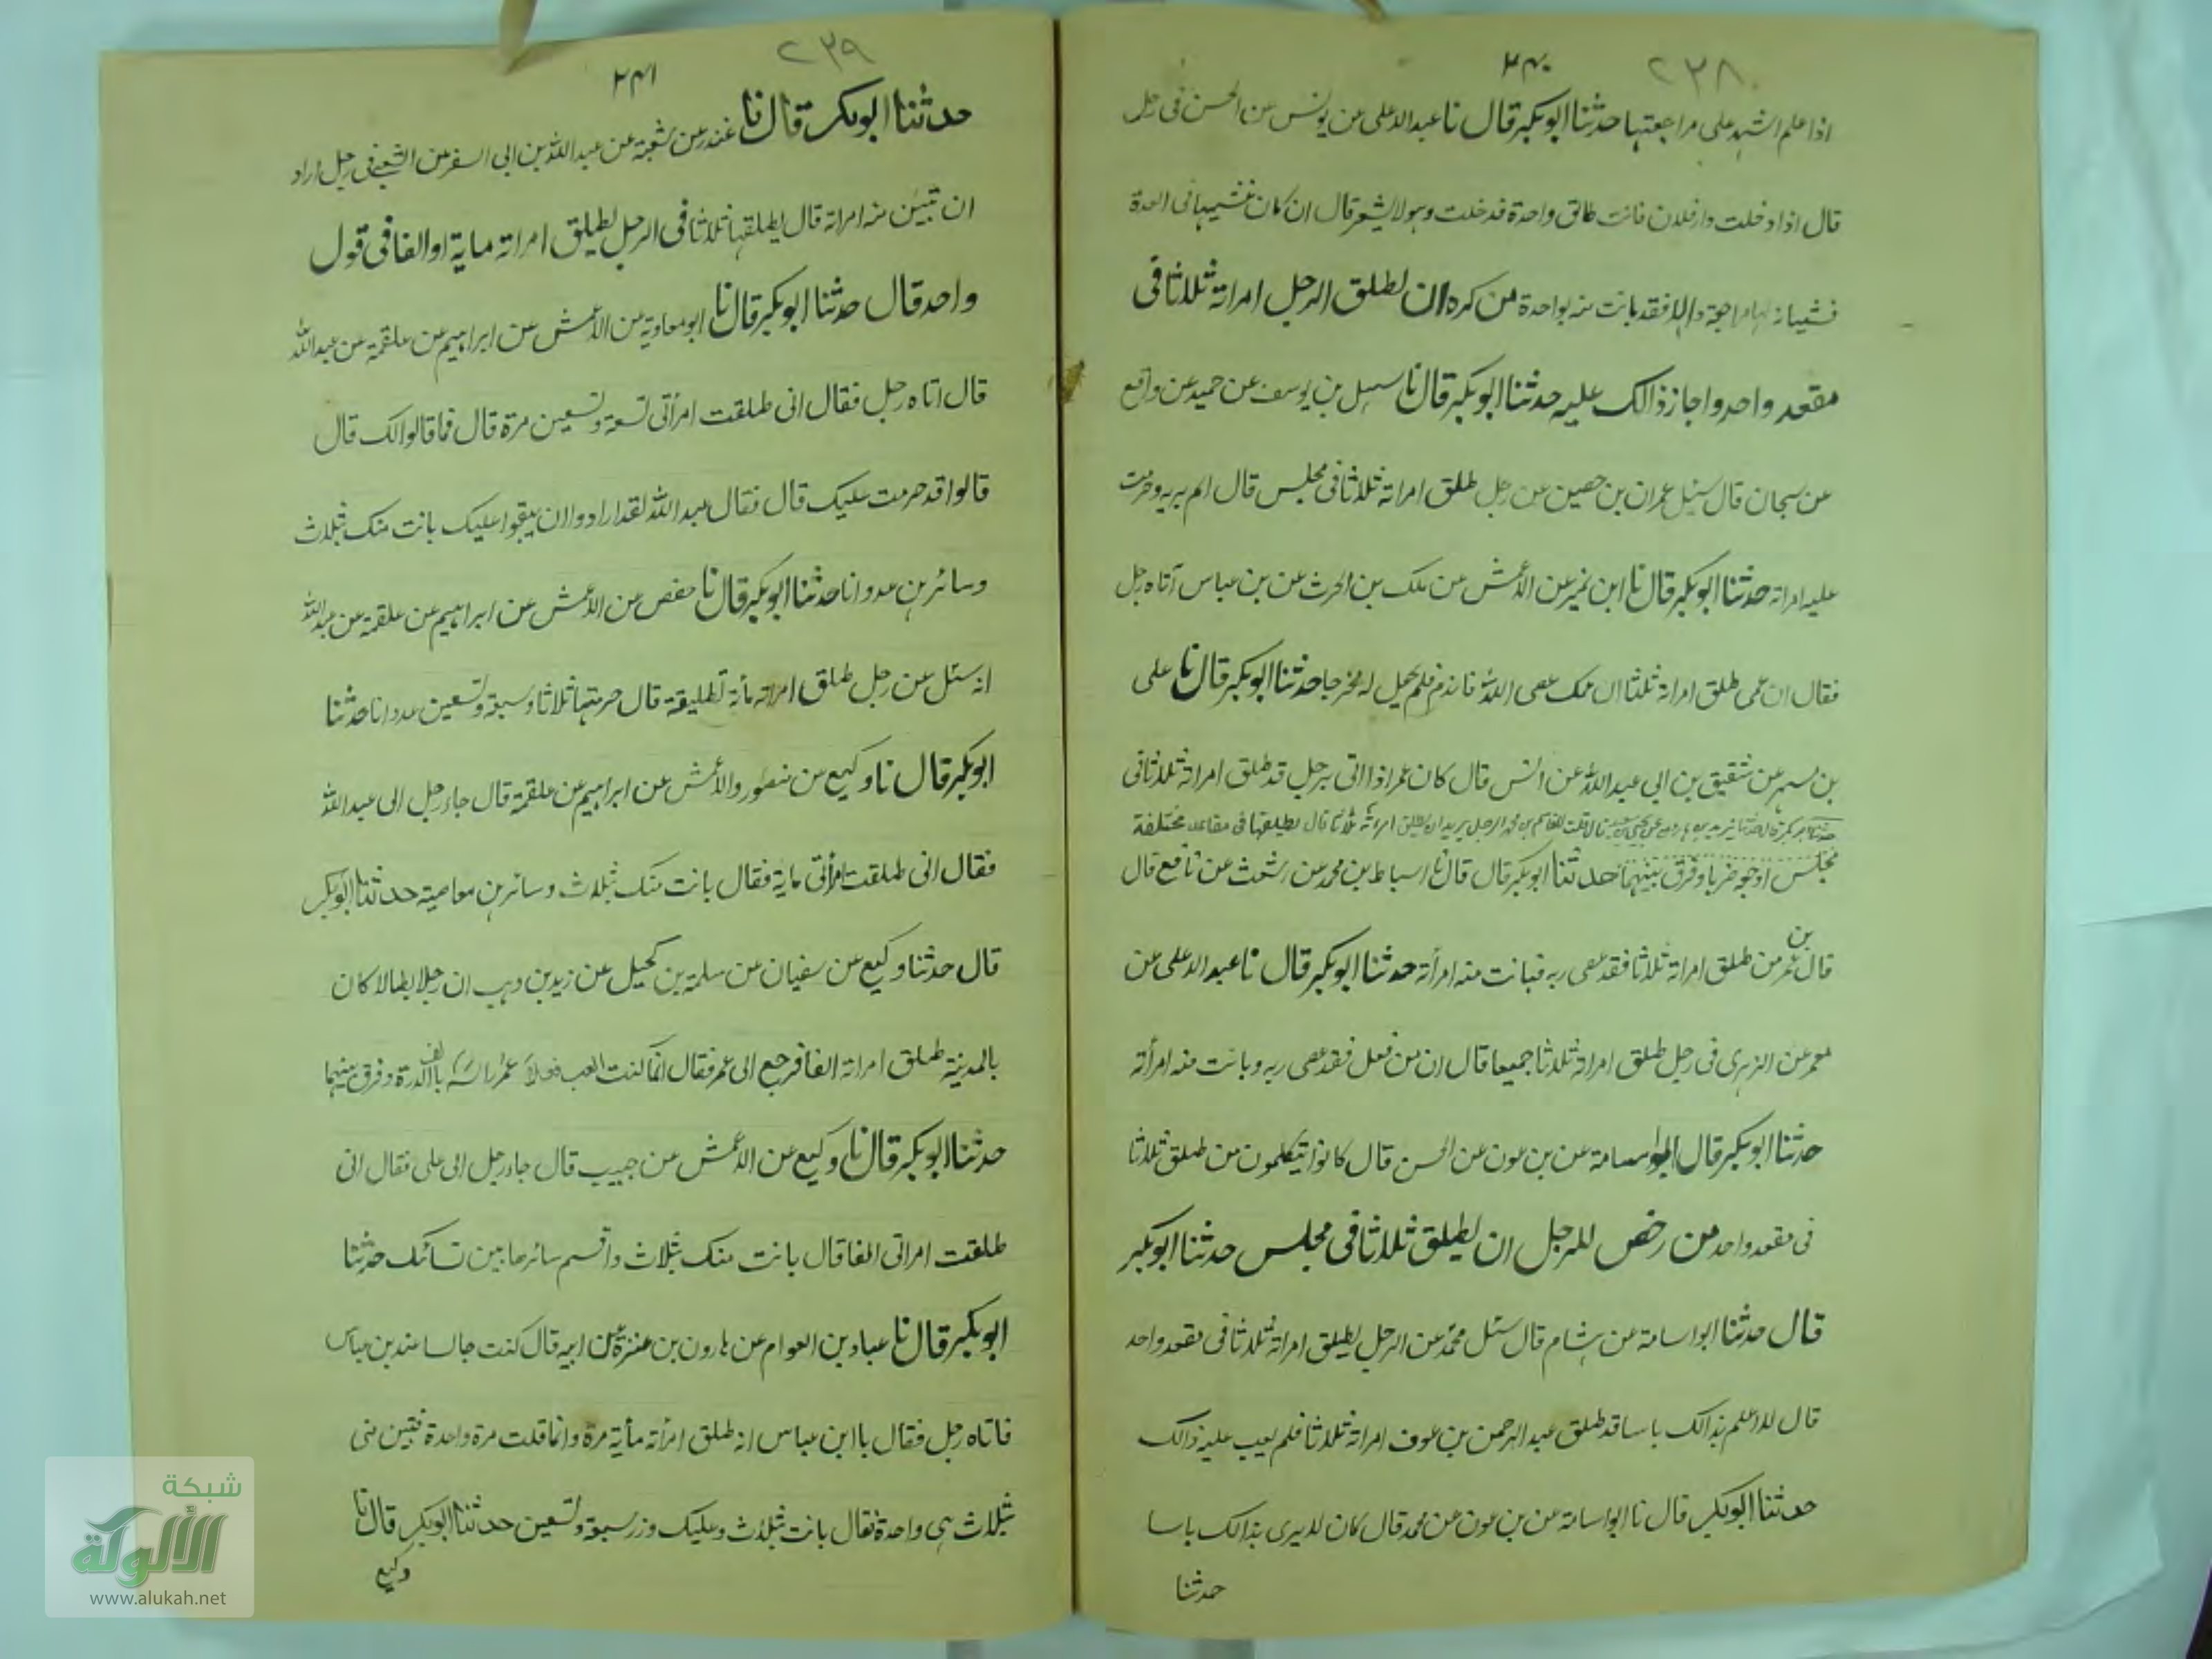 ٢٣٨
٢٤٠
اذا علم اشهد على مراجعتها حدثنا ابو بكر قال نا عبد الاعلى عن يونس عن الحسن فى رجل
قال اذا دخلت دار فلان فانت طالق واحدة فدخلت وهو لا يشعر قال ان كان غشيها فى العدة
فغشيانه لها مراجعة والا فقد بانت منه بواحدة من كره ان يطلق الرجل امراته ثلاثا فى
مقعد واحد واجاز ذالك عليه حدثنا ابو بكر قال نا سهل بن يوسف عن حميد عن واقع
عن سبحان قال سئل عمران بن حصين عن رجل طلق امراته ثلاثا فى مجلس قال اثم بربه وحرمت
عليه امراته حدثنا ابو بكر قال نا ابن نمير عن الأعمش عن ملك بن الحرث عن بن عباس أتاه رجل
فقال ان عمى طلق امراته ثلثا ان عمك عصى الله فاندم فلم يجعل له مخرجا حدثنا ابو بكر قال نا على
بن مسهر عن شقيق بن ابى عبد الله عن انس قال كان عمر اذا اتى برجل قد طلق امراته ثلاثا فى
قال قلت للقاسم بن محمد الرجل يريد ان يطلق امرأته ثلاثا قال يطلقها فى مقاعد مختلفة
مجلس اوجعه ضربا وفرق بينهما حدثنا ابو بكر قال قال نا اسباط بن محمد عن اشعث عن نافع قال
قال بن عمر من طلق امراته ثلاثا فقد عصى ربه فبانت منه امرأته حدثنا ابو بكر قال نا عبد الاعلى عن
معمر عن الزهرى فى رجل طلق امراته ثلاثا جميعا قال ان من فعل فقد عصى ربه وبانت منه امرأته
حدثنا ابو بكر قال ابو اسامة عن بن عون عن الحسن قال كانوا يتكلمون من طلق ثلاثا
فى مقعد واحد من رخص للرجل ان يطلق ثلاثا فى مجلس حدثنا ابو بكر
قال حدثنا ابو اسامة عن هشام قال سئل محمد عن الرجل يطلق امراته ثلاثا فى مقعد واحد
قال لا اعلم بذالك باسا قد طلق عبد الرحمن بن عوف امراته ثلاثا فلم يعب عليه ذالك
حدثنا ابو بكر قال نا ابو اسامة عن بن عون عن محمد قال كان لا يرى بذالك باسا
حدثنا
٢٣٩
٢٤١
حدثنا ابو بكر قال نا غندر عن شعبة عن عبد الله بن ابى السفر عن الشعبى فى رجل اراد
ان تبين منه امراته قال يطلقها ثلاثا فى الرجل يطلق امراته ماية او الفا فى قول
واحد قال حدثنا ابو بكر قال نا ابو معاوية عن الأعمش عن ابراهيم عن علقمة عن عبد الله
قال اتاه رجل فقال انى طلقت امرأتى تسعة وتسعين مرة قال فما قالوا لك قال
قالوا قد حرمت عليك قال فقال عبد الله لقد ارادوا ان يبقوا عليك بانت منك بثلاث
وسائرهن عدوانا حدثنا ابو بكر قال نا حفص عن الأعمش عن ابراهيم عن علقمة عن عبد الله
انه سئل عن رجل طلق امراته مأية تطليقة قال حرمتها ثلاثا وسبعة وتسعين عدوانا حدثنا
ابو بكر قال نا وكيع عن منصور والأعمش عن ابراهيم عن علقمة قال جاء رجل الى عبد الله
فقال انى طلقت امرأتى ماية فقال بانت منك بثلاث وسائرهن معاصية حدثنا ابو بكر
قال حدثنا وكيع عن سفيان عن سلمة بن كهيل عن زيد بن وهب ان رجلا بطالا كان
بالمدينة طلق امراته الفا فرجع الى عمر فقال انما كنت العب فعلا عمر راسه بالدرة وفرق بينهما
حدثنا ابو بكر قال نا وكيع عن الاعمش عن حبيب قال جاء رجل الى على فقال انى
طلقت امراتى الفا قال بانت منك بثلاث واقسم سائرها بين نسائك حدثنا
ابو بكر قال نا عباد بن العوام عن هارون بن عنترة عن ابيه قال كنت جالسا عند بن عباس
فاتاه رجل فقال يا ابن عباس انه طلق امرأته مأية مرة وانما قلت مرة واحدة فتبين منى
بثلاث هى واحدة فقال بانت بثلاث وعليك وزر سبعة وتسعين حدثنا ابو بكر قال نا
وكيع
شبكة
الألوكة
www.alukah.net